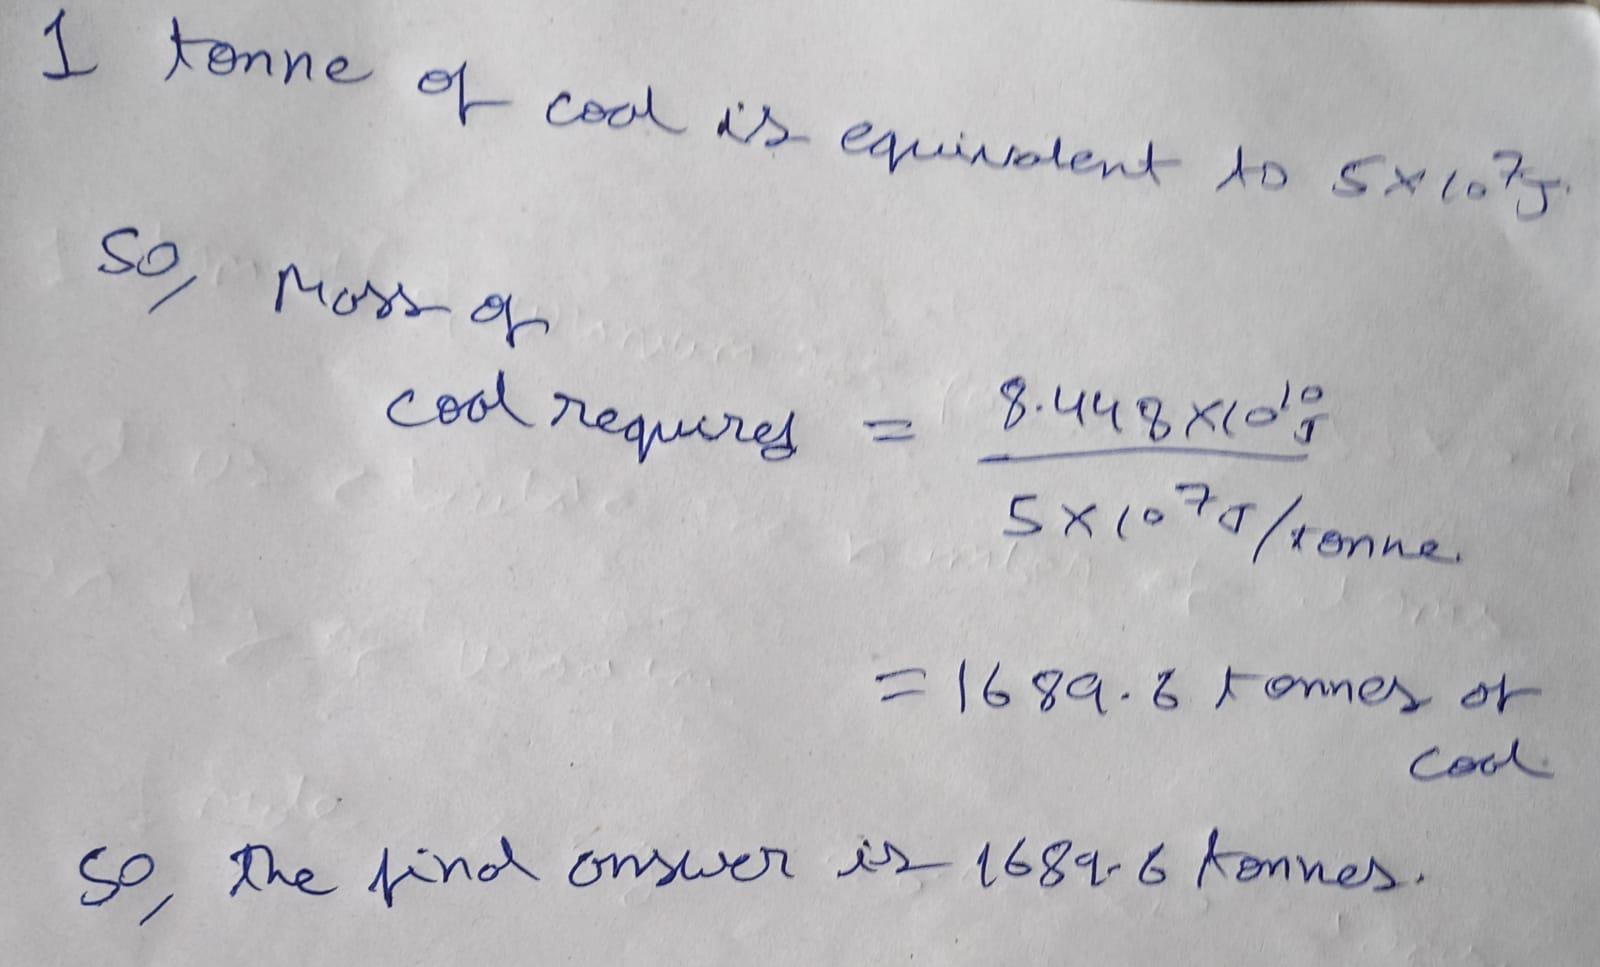 1 tonne of coal is equivalent to 5×10⁷J.
So, Mass of
coal required = 8.448×10¹⁰J
5×10⁷J/tonne.
= 1689.6 tonnes of
coal.
So, the final answer is 1689.6 tonnes.